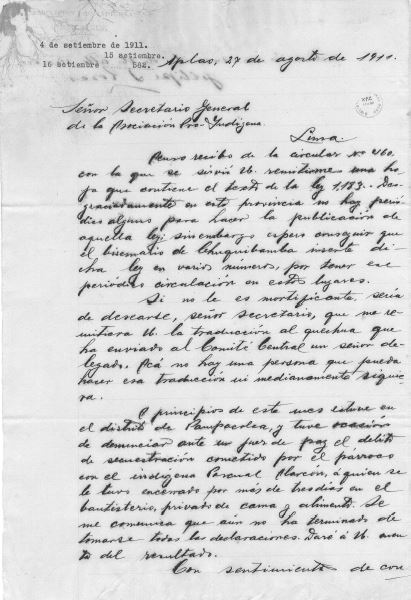 4 de setiembre de 1911.
15 setiembre
16 setiembre 582.
Aplao, 27 de agosto de 1911.
Señor Secretario General
de la Asociación Pro-Indígena.
Lima.
Acuso recibo de la circular Nº 460.
con la que se sirvió U. remitirme una ho-
ja que contiene el texto de la ley 1,183. Des-
graciadamente en esta provincia no hay perió-
dico alguno para hacer la publicación de
aquella ley sinembargo espero conseguir que
el bisemario de Chuquibamba inserte di-
cha ley en varios números, por tener ese
periódico circulación en estos lugares.
Si no le es mortificante, sería
de desearse, señor secretario, que me re-
mitiera U. la traducción al quechua que
ha enviado al Comité Central un señor de-
legado. Acá no hay una persona que pueda
hacer esa traducción ni medianamente siquie-
ra.
A principios de este mes estuve en
el distrito de Pampacolca, y tuve ocasión
de denunciar ante un juez de paz el delito
de secuestración cometido por el párroco
con el indígena Pascual Alarcón, á quien se
le tuvo encerrado por más de tres días en el
bautisterio, privado de cama y alimento. Se
me comunica que aún no ha terminado de
tomarse todas las declaraciones. Daré á U. cuen-
ta del resultado.
Con sentimientos de con